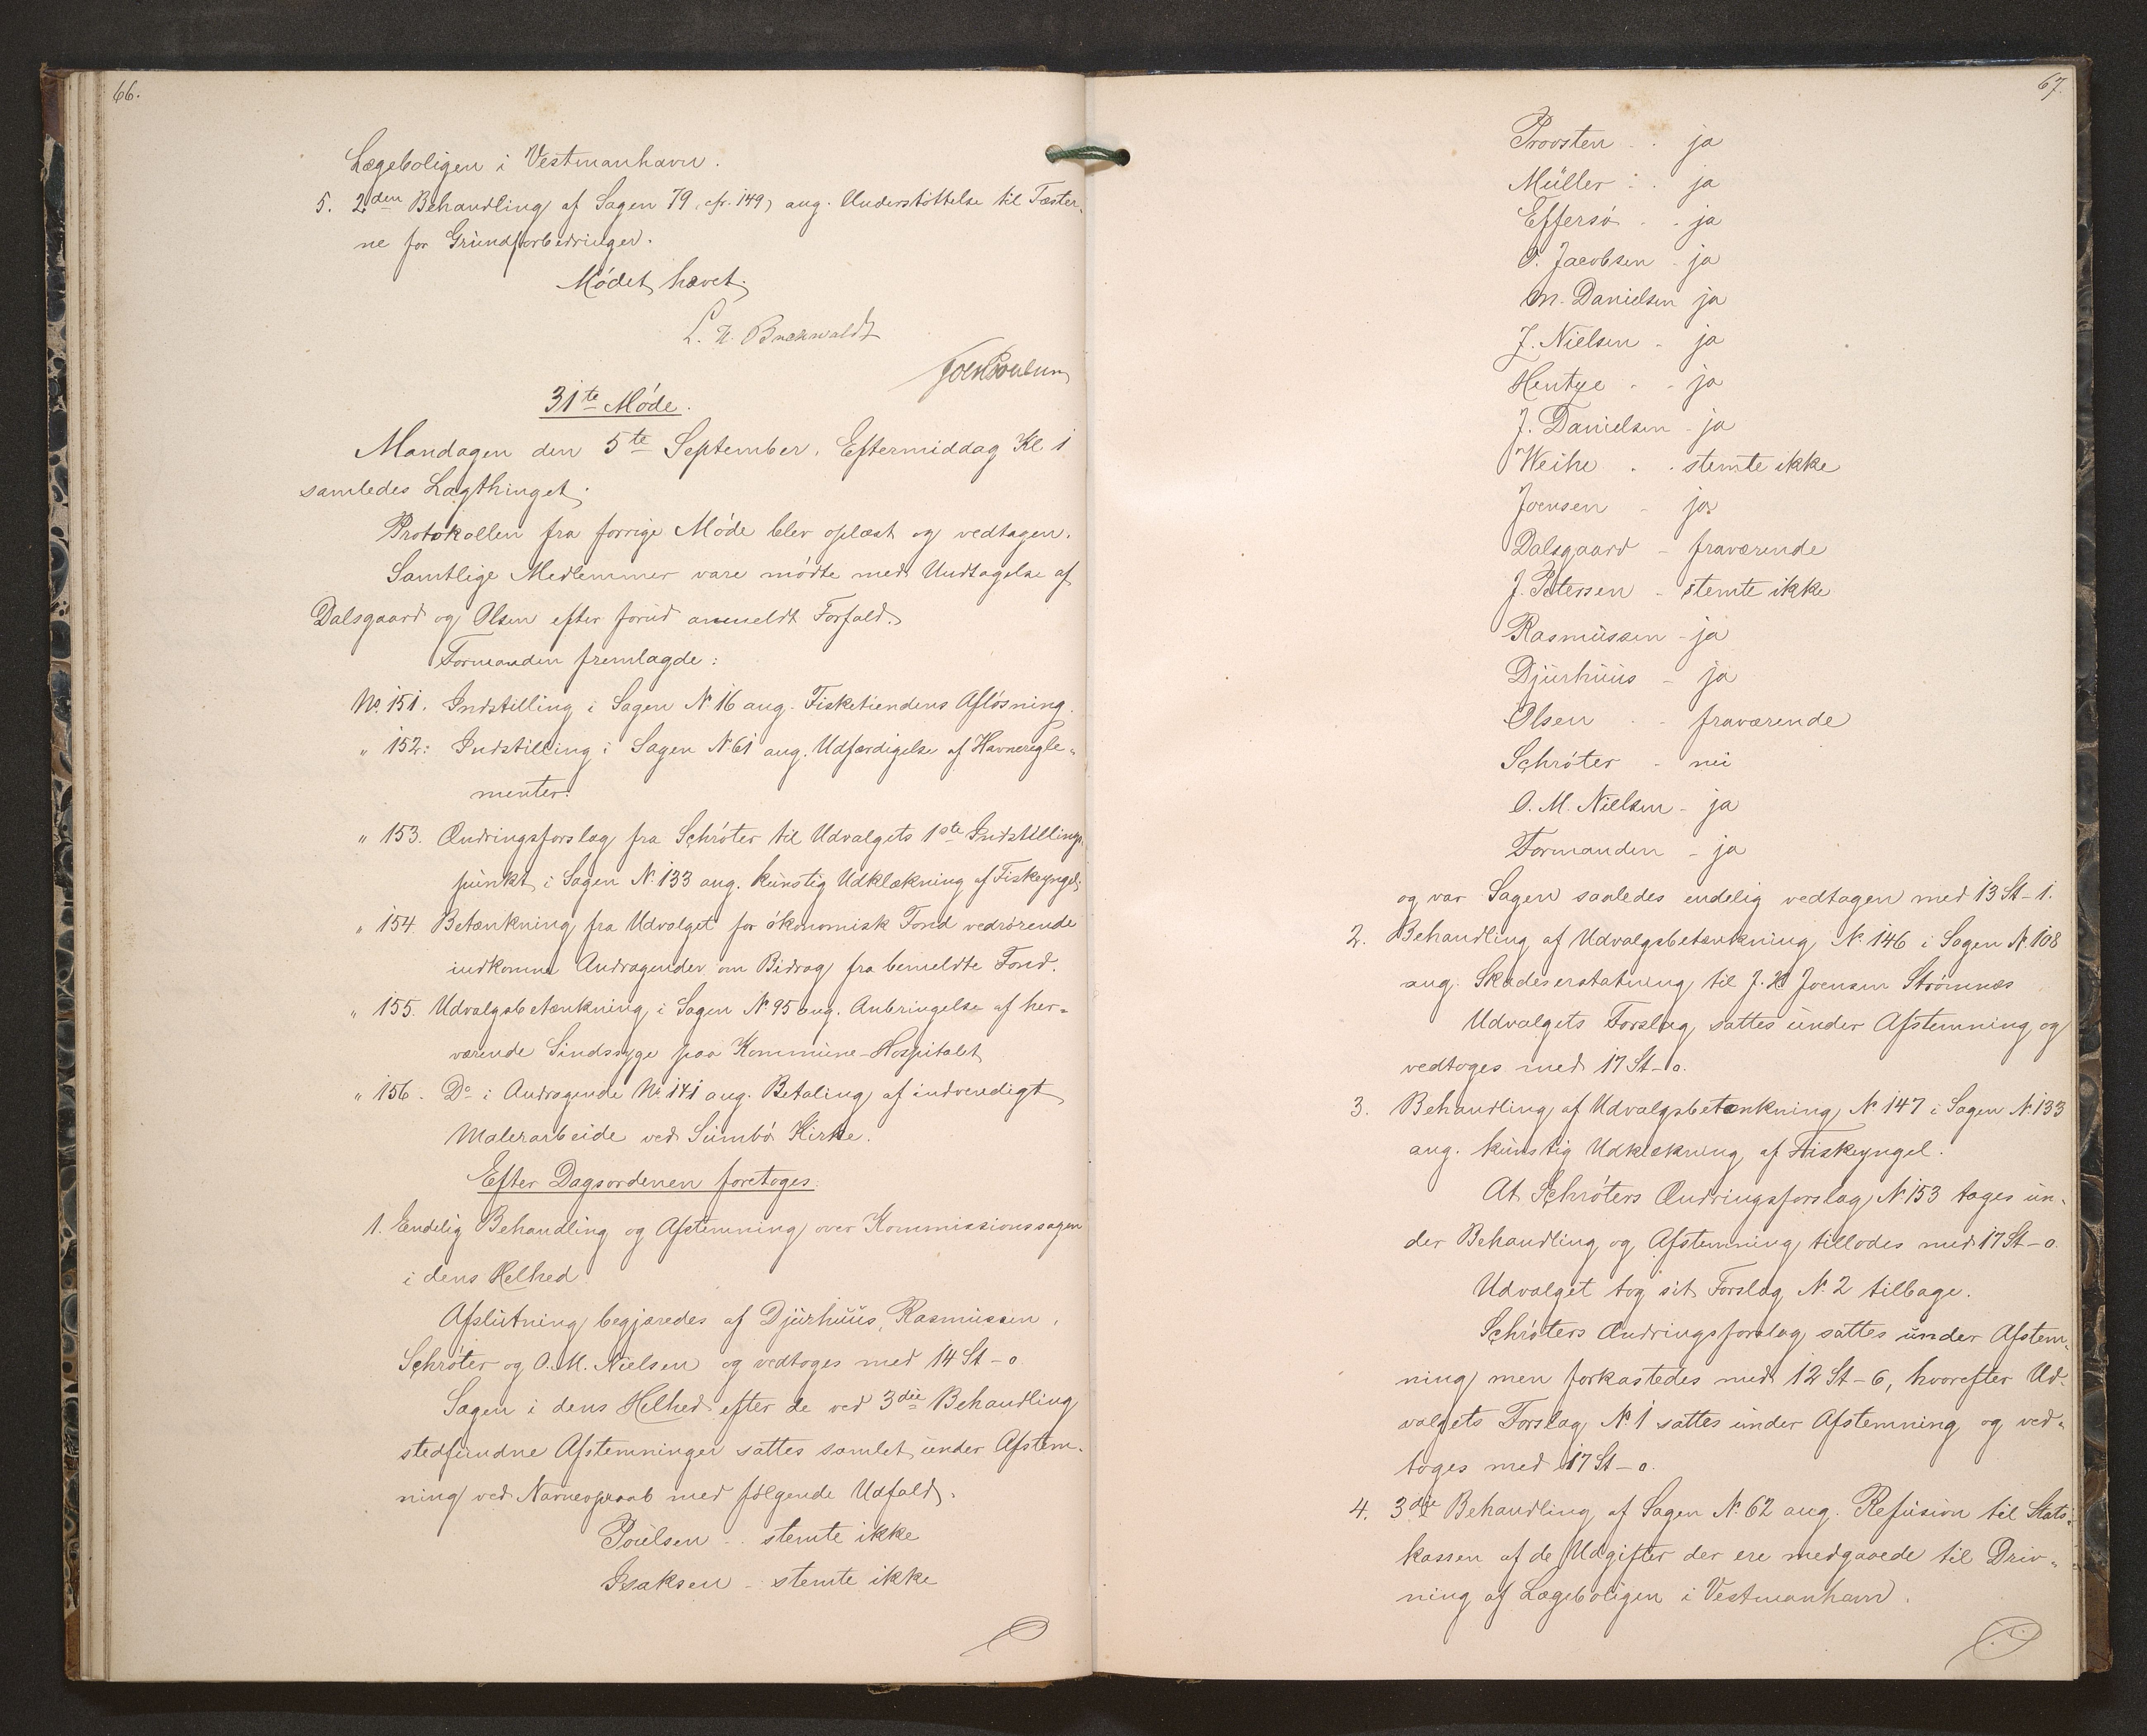 66.
Lægeboligen i Vestmanhavn.
5. 2den Behandling af Sagen 79 (cfr. 149) ang. Understøttelse til Fæster-
ne for Grundforbedringer.
Mødet hævet.
L. N. Buchwaldt
31te Møde.
Mandagen den 5te September, Eftermiddag Kl. 1
samledes Lagthinget.
Protokollen fra forrige Møde blev oplæst og vedtagen.
Samtlige Medlemmer vare mødte med Undtagelse af
Dalsgaard og Olsen efter forud anmeldt Forfald.
Formanden fremlagde:
No. 151. Indstilling i Sagen N. 16 ang. Fisketiendens Afløsning.
" 152: Indstilling i Sagen N. 61 ang. Udfærdigelse af Havneregle-
menter.
" 153. Ændringsforslag fra Schrøter til Udvalgets 1ste Indstillings-
punkt i Sagen N. 133 ang. kunstig Udklækning af Fiskeyngel;
" 154 Betænkning fra Udvalget for økonomisk Fond vedrørende
indkomne Andragender om Bidrag fra bemeldte Fond.
" 155. Udvalgsbetænkning i Sagen N. 95 ang. Anbringelse af her-
værende Sindssyge paa Kommune-Hospitalet
" 156. Do i Andragende No 141 ang. Betaling af indvendigt
Malerarbeide ved Sumbø Kirke.
Efter Dagsordenen foretoges:
1. Endelig Behandling og Afstemning over Kommissionssagen
i dens Helhed.
Afslutning begjæredes af Djurhuus, Rasmussen,
Schrøter og O. M. Nielsen og vedtoges med 14 St - 0
Sagen i dens Helhed efter de ved 3die Behandling
stedfundne Afstemninger sattes samlet under Afstem-
ning ved Navneopraab med følgende Udfald.
Poulsen - . stemte ikke
Isaksen - stemte ikke
67.
Provsten - . ja
Müller - . ja
Effersø . - ja
O. Jacobsen - ja
M. Danielsen ja
J. Nielsen - ja
Hentze . - ja
J. Danielsen - ja
Weihe . . stemte ikke
Joensen - ja
Dalsgaard - fraværende
J. Petersen - stemte ikke
Rasmussen - ja
Djurhuus - ja
Olsen . - fraværende
Schrøter - nei
O. M. Nielsen - ja
Formanden - ja
og var Sagen saaledes endelig vedtagen med 13 St - 1.
2. Behandling af Udvalgsbetænkning N. 146 i Sagen N. 108
ang. Skadeserstatning til J. H Joensen Strømnæs
Udvalgets Forslag sattes under Afstemning og
vedtoges med 17 St - 0.
3. Behandling af Udvalgsbetænkning N. 147 i Sagen N. 133
ang. kunstig Udklækning af Fiskeyngel.
At Schrøters Ændringsforslag N. 153 tages un-
der Behandling og Afstemning tillodes med 17 St - 0.
Udvalget tog sit Forslag N. 2 tilbage.
Schrøters Ændringsforslag sattes under Afstem-
ning men forkastedes med 12 St - 6, hvorefter Ud-
valgets Forslag N. 1 sattes under Afstemning og ved-
toges med 17 St - 0.
4. 3die Behandling af Sagen N. 62 ang. Refusion til Stats-
kassen af de Udgifter der ere medgaaede til Driv-
ning af Lægeboligen i Vestmanhavn.